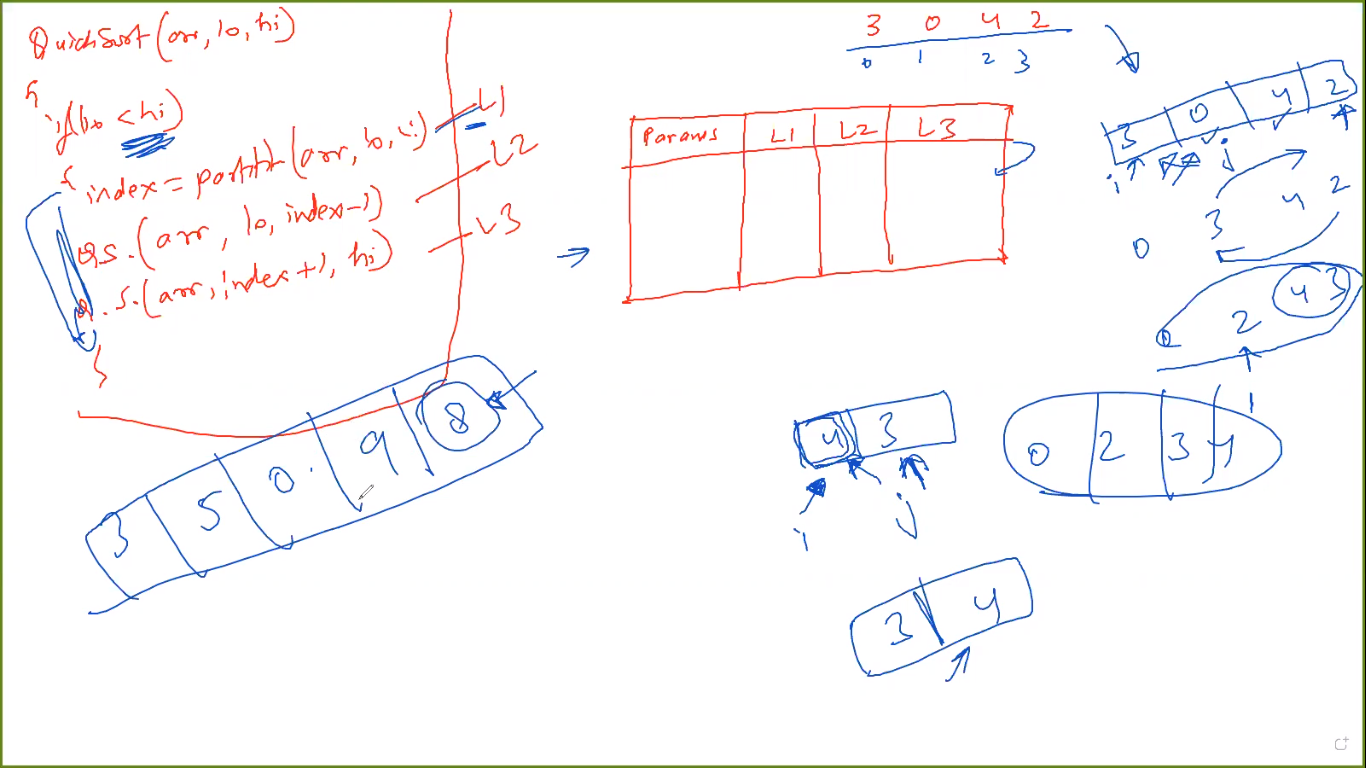 QuickSort(arr, lo, hi)
{
if(lo < hi)
{ index = partitn(arr, lo, hi) L1
Q.S.(arr, lo, index-1) L2
Q.S.(arr, index+1, hi) L3
}
3 0 4 2
0 1 2 3
Params L1 L2 L3
3 0 4 2
i j
3 4 2
0
0 2 4 3
1
3 5 0 9 8
4 3
i j
0 2 3 4
3 4